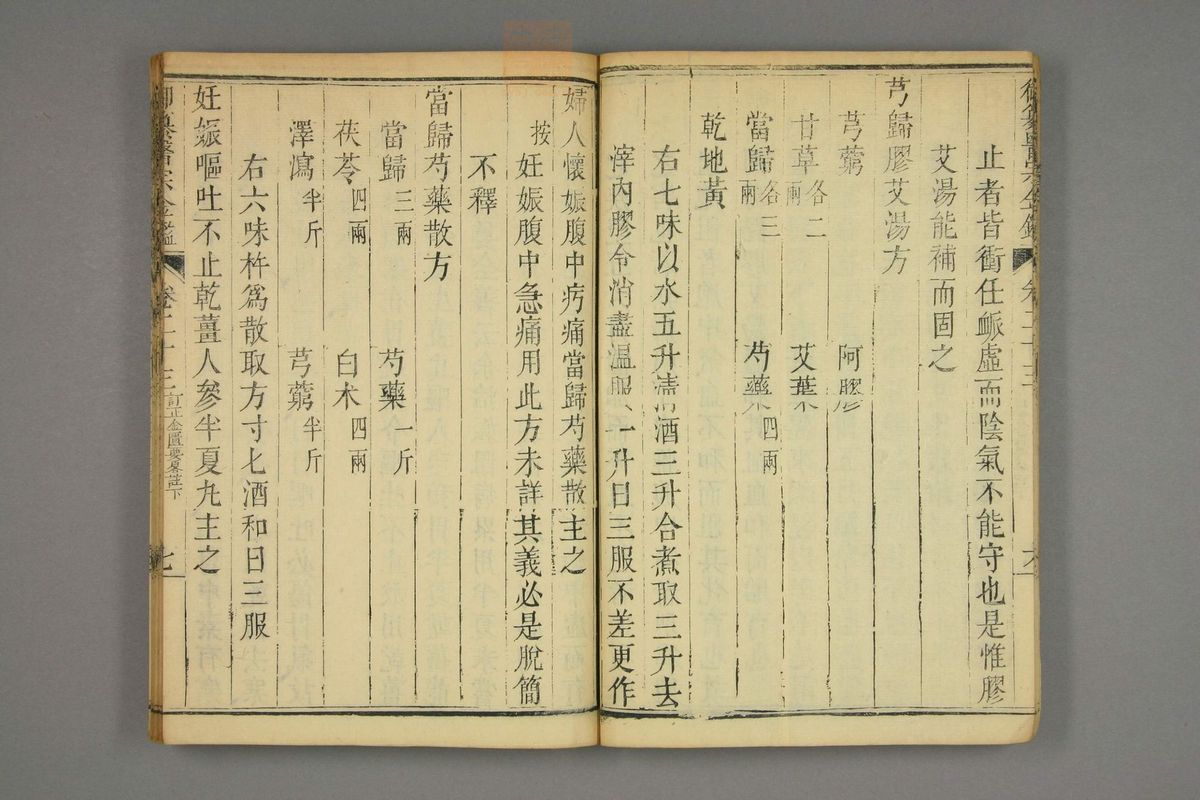 止者皆衝任衇虛而陰氣不能守也是惟膠
艾湯能補而固之
芎歸膠艾湯方
芎藭 阿膠
甘草各二兩 艾葉
當歸各三兩 芍藥四兩
乾地黃
右七味以水五升清酒三升合煮取三升去
滓內膠令消盡溫服一升日三服不差更作
婦人懷娠腹中㽲痛當歸芍藥散主之
按妊娠腹中急痛用此方未詳其義必是脫簡
不釋
當歸芍藥散方
當歸三兩 芍藥一斤
茯苓四兩 白朮四兩
澤瀉半斤 芎藭半斤
右六味杵為散取方寸匕酒和日三服
妊娠嘔吐不止乾薑人參半夏丸主之
御纂醫宗金鑑 卷二十三 訂正金匱要畧註下 七